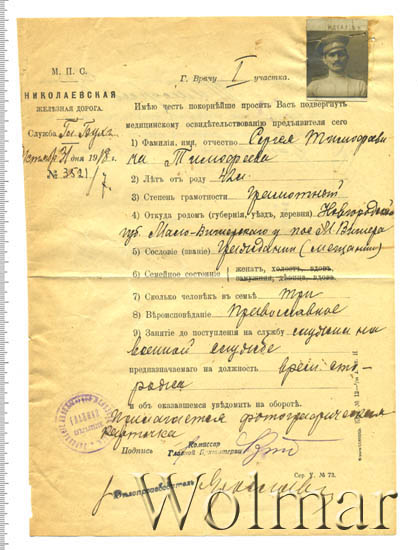 М. П. С.
НИКОЛАЕВСКАЯ
ЖЕЛЕЗНАЯ ДОРОГА.
Служба
1918 г.
№ 381/7
Г. Врачу I участка.
Имѣю честь покорнѣйше просить Васъ подвергнуть
медицинскому освидѣтельствованію предъявителя сего
1) Фамилія, имя, отчество Сергея Тимофееви
ча Тимофеева
2) Лѣтъ отъ роду 42
3) Степень грамотности Грамотный
4) Откуда родомъ (губернія, уѣздъ, деревня) Новгородской
губ. Мало-Вишерскаго у. пос. М. Вишера
5) Сословіе (званіе) Гражданинъ (мещанин)
6) Семейное состояніе { женатъ, холостъ, вдовъ,
замужняя, дѣвица, вдова.
7) Сколько человѣкъ въ семьѣ три
8) Вѣроисповѣданіе Православное
9) Занятіе до поступленія на службу служилъ на
военной службе
предназначаемаго на должность врем. сто-
рожа
и объ оказавшемся увѣдомить на оборотѣ.
Прилагается фотографическая
карточка
Комиссар
Подпись Главной Бухгалтерии
Дѣлопроизводитель
Сер. У. № 73.
Wolmar